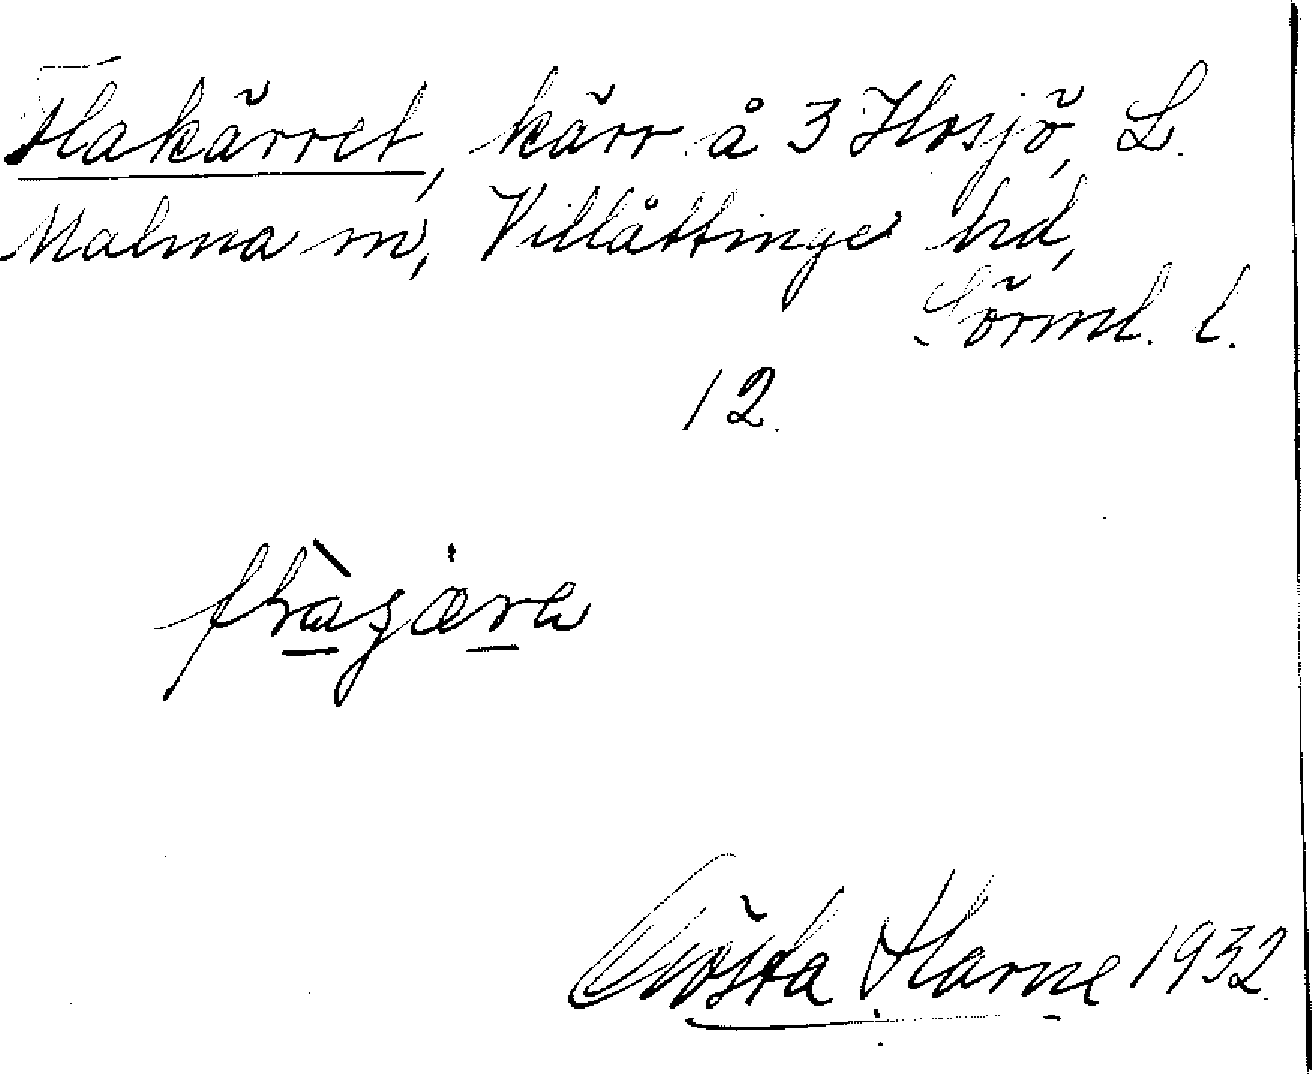 Flakärret, kärr å 3 Hosjö, L.
Malma sn, Villåttinge hd,
Sörml. l.
12.
Gösta 1932.